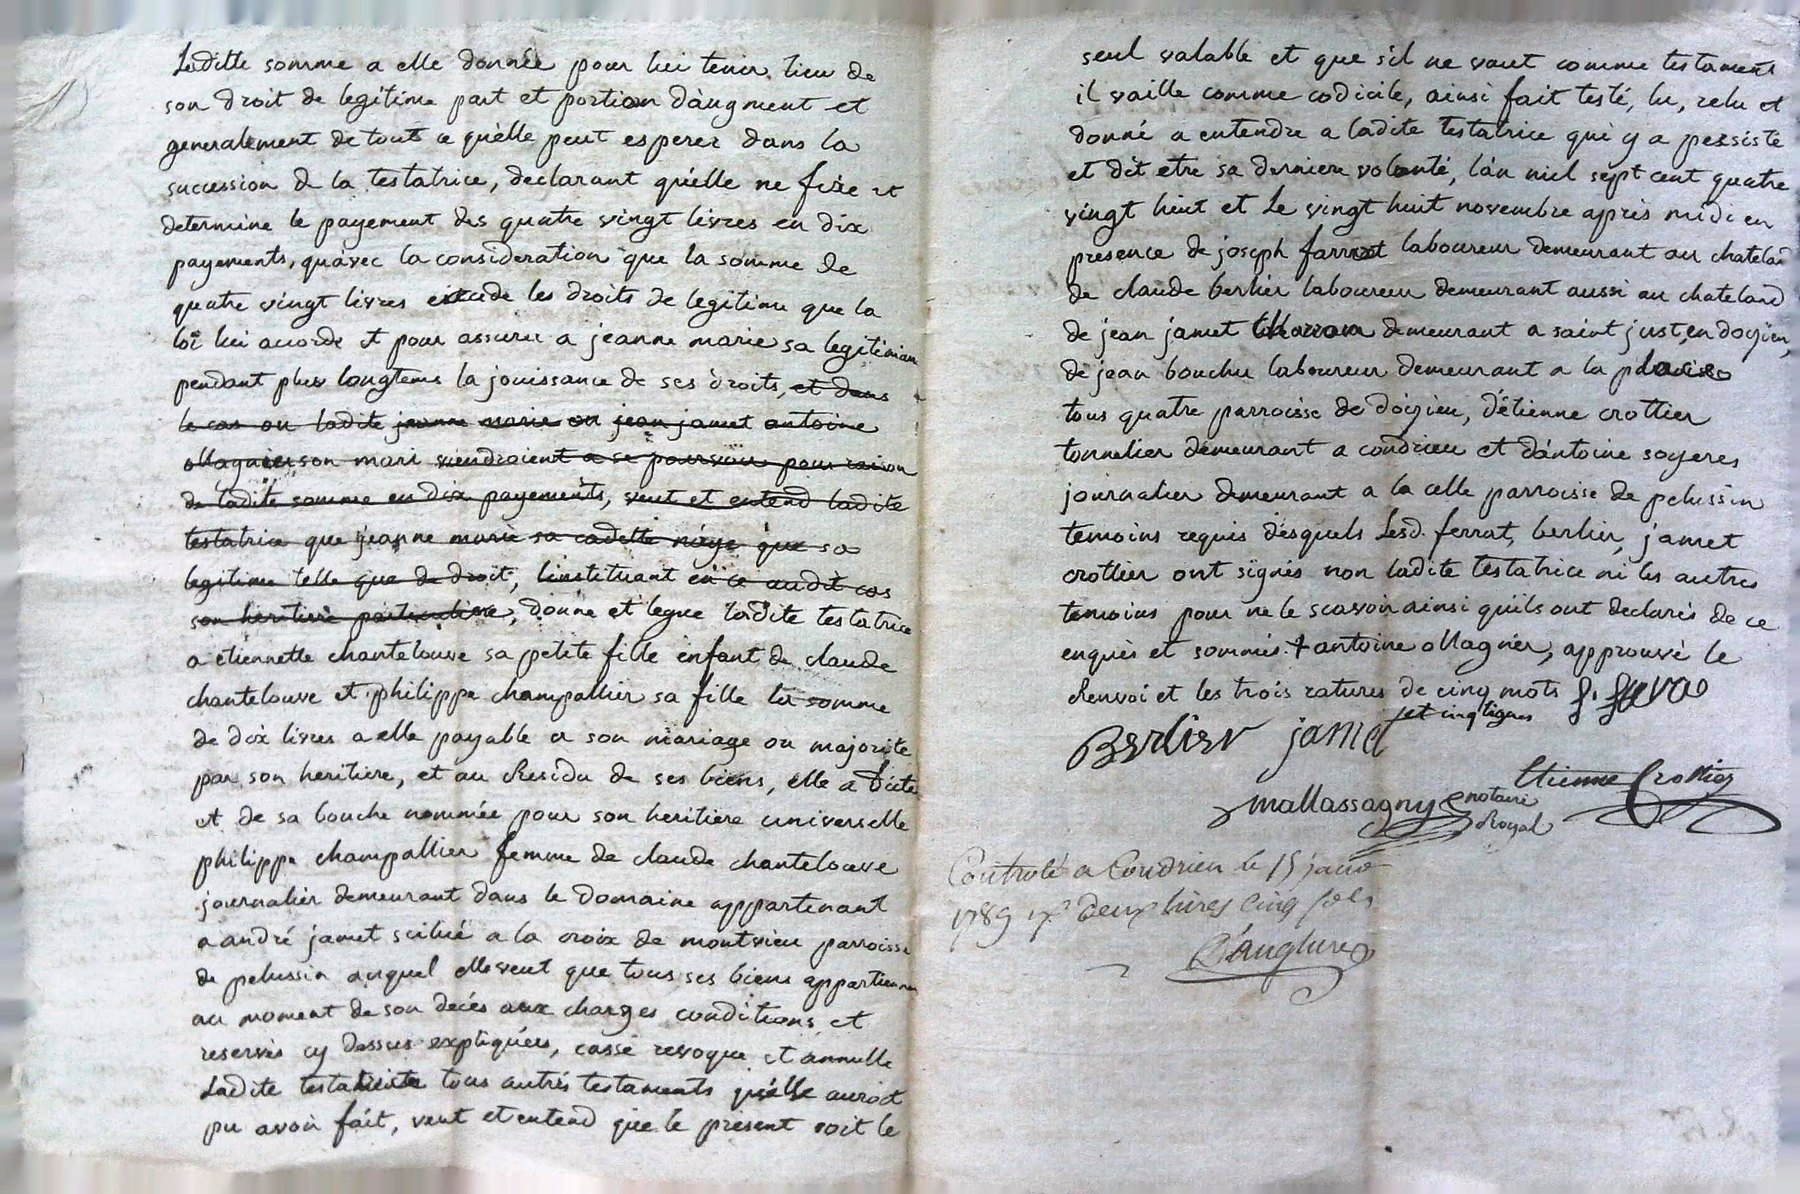 Laditte somme a elle donnée pour lui tenir lieu de
son droit de legitime part et portion d'augment et
generalement de tout ce qu'elle peut esperer dans la
succession de la testatrice, declarant qu'elle ne fixe et
determine le payement des quatre vingt livres en dix
payements, qu'avec la consideration que la somme de
quatre vingt livres excede les droits de legitime que la
loi lui accorde et pour assurer a jeanne marie sa legitime
pendant plus longtems la jouissance de ses droits, et dans
le cas ou ladite jeanne marie ou jean jamet antoine
Magnier son mari viendroient a se pourvoir pour raison
de ladite somme en dix payements, veut et entend ladite
testatrice que jeanne marie sa cadette n'aye que sa
legitime telle que de droit, l'instituant en ce audit cas
son heritiere particuliere, donne et legue ladite testatrice
a etiennette chantelouve sa petite fille enfant de claude
chantelouve et philippe champallier sa fille la somme
de dix livres a elle payable a son mariage ou majorite
par son heritiere, et au Residu de ses biens, elle a dicté
et de sa bouche nommée pour son heritiere universelle
philippe champallier femme de claude chantelouve
journalier demeurant dans le domaine appartenant
a andré jamet scitué a la croix de montvieu parroisse
de pelussin auquel elle veut que tous ses biens appartiennent
au moment de son decés aux charges conditions et
reservés cy dessus expliquées, cassé revoque et annulle
Ladite testatrice tous autrés testaments qu'elle auroit
pu avoir fait, veut et entend que le present soit le
seul valable et que s'il ne vaut comme testament
il vaille comme codicile, ainsi fait testé, lu, relu et
donné a entendre a ladite testatrice qui y a persisté
et dit etre sa derniere volonté, l'an mil sept cent quatre
vingt huit et Le vingt huit novembre après midi en
presence de joseph farrat laboureur demeurant au chateland
de claude berlier laboureur demeurant aussi au chateland
de jean jamet demeurant a saint just, en doizieu,
de jean bouchu laboureur demeurant a la
tous quatre parroisse de doizieu, d'étienne crottier
tonnelier demeurant a condrieu et d'antoine soyeres
journalier demeurant a la celle parroisse de pelussin
temoins requis desquels Lesd. ferrat, berlier, jamet
crottier ont signés non ladite testatrice ni les autres
temoins pour ne le scavoir ainsi quils ont declarés de ce
enquis et sommés. + antoine Magnier, approuvé le
Renvoi et les trois ratures de cinq mots
et cinq lignes
Berlier jamet
Etienne Crottier
Mallassagny notaire
Royal
Controlé a Condrieu le 15 janv
1789 deux livres cinq sols
D'anglure